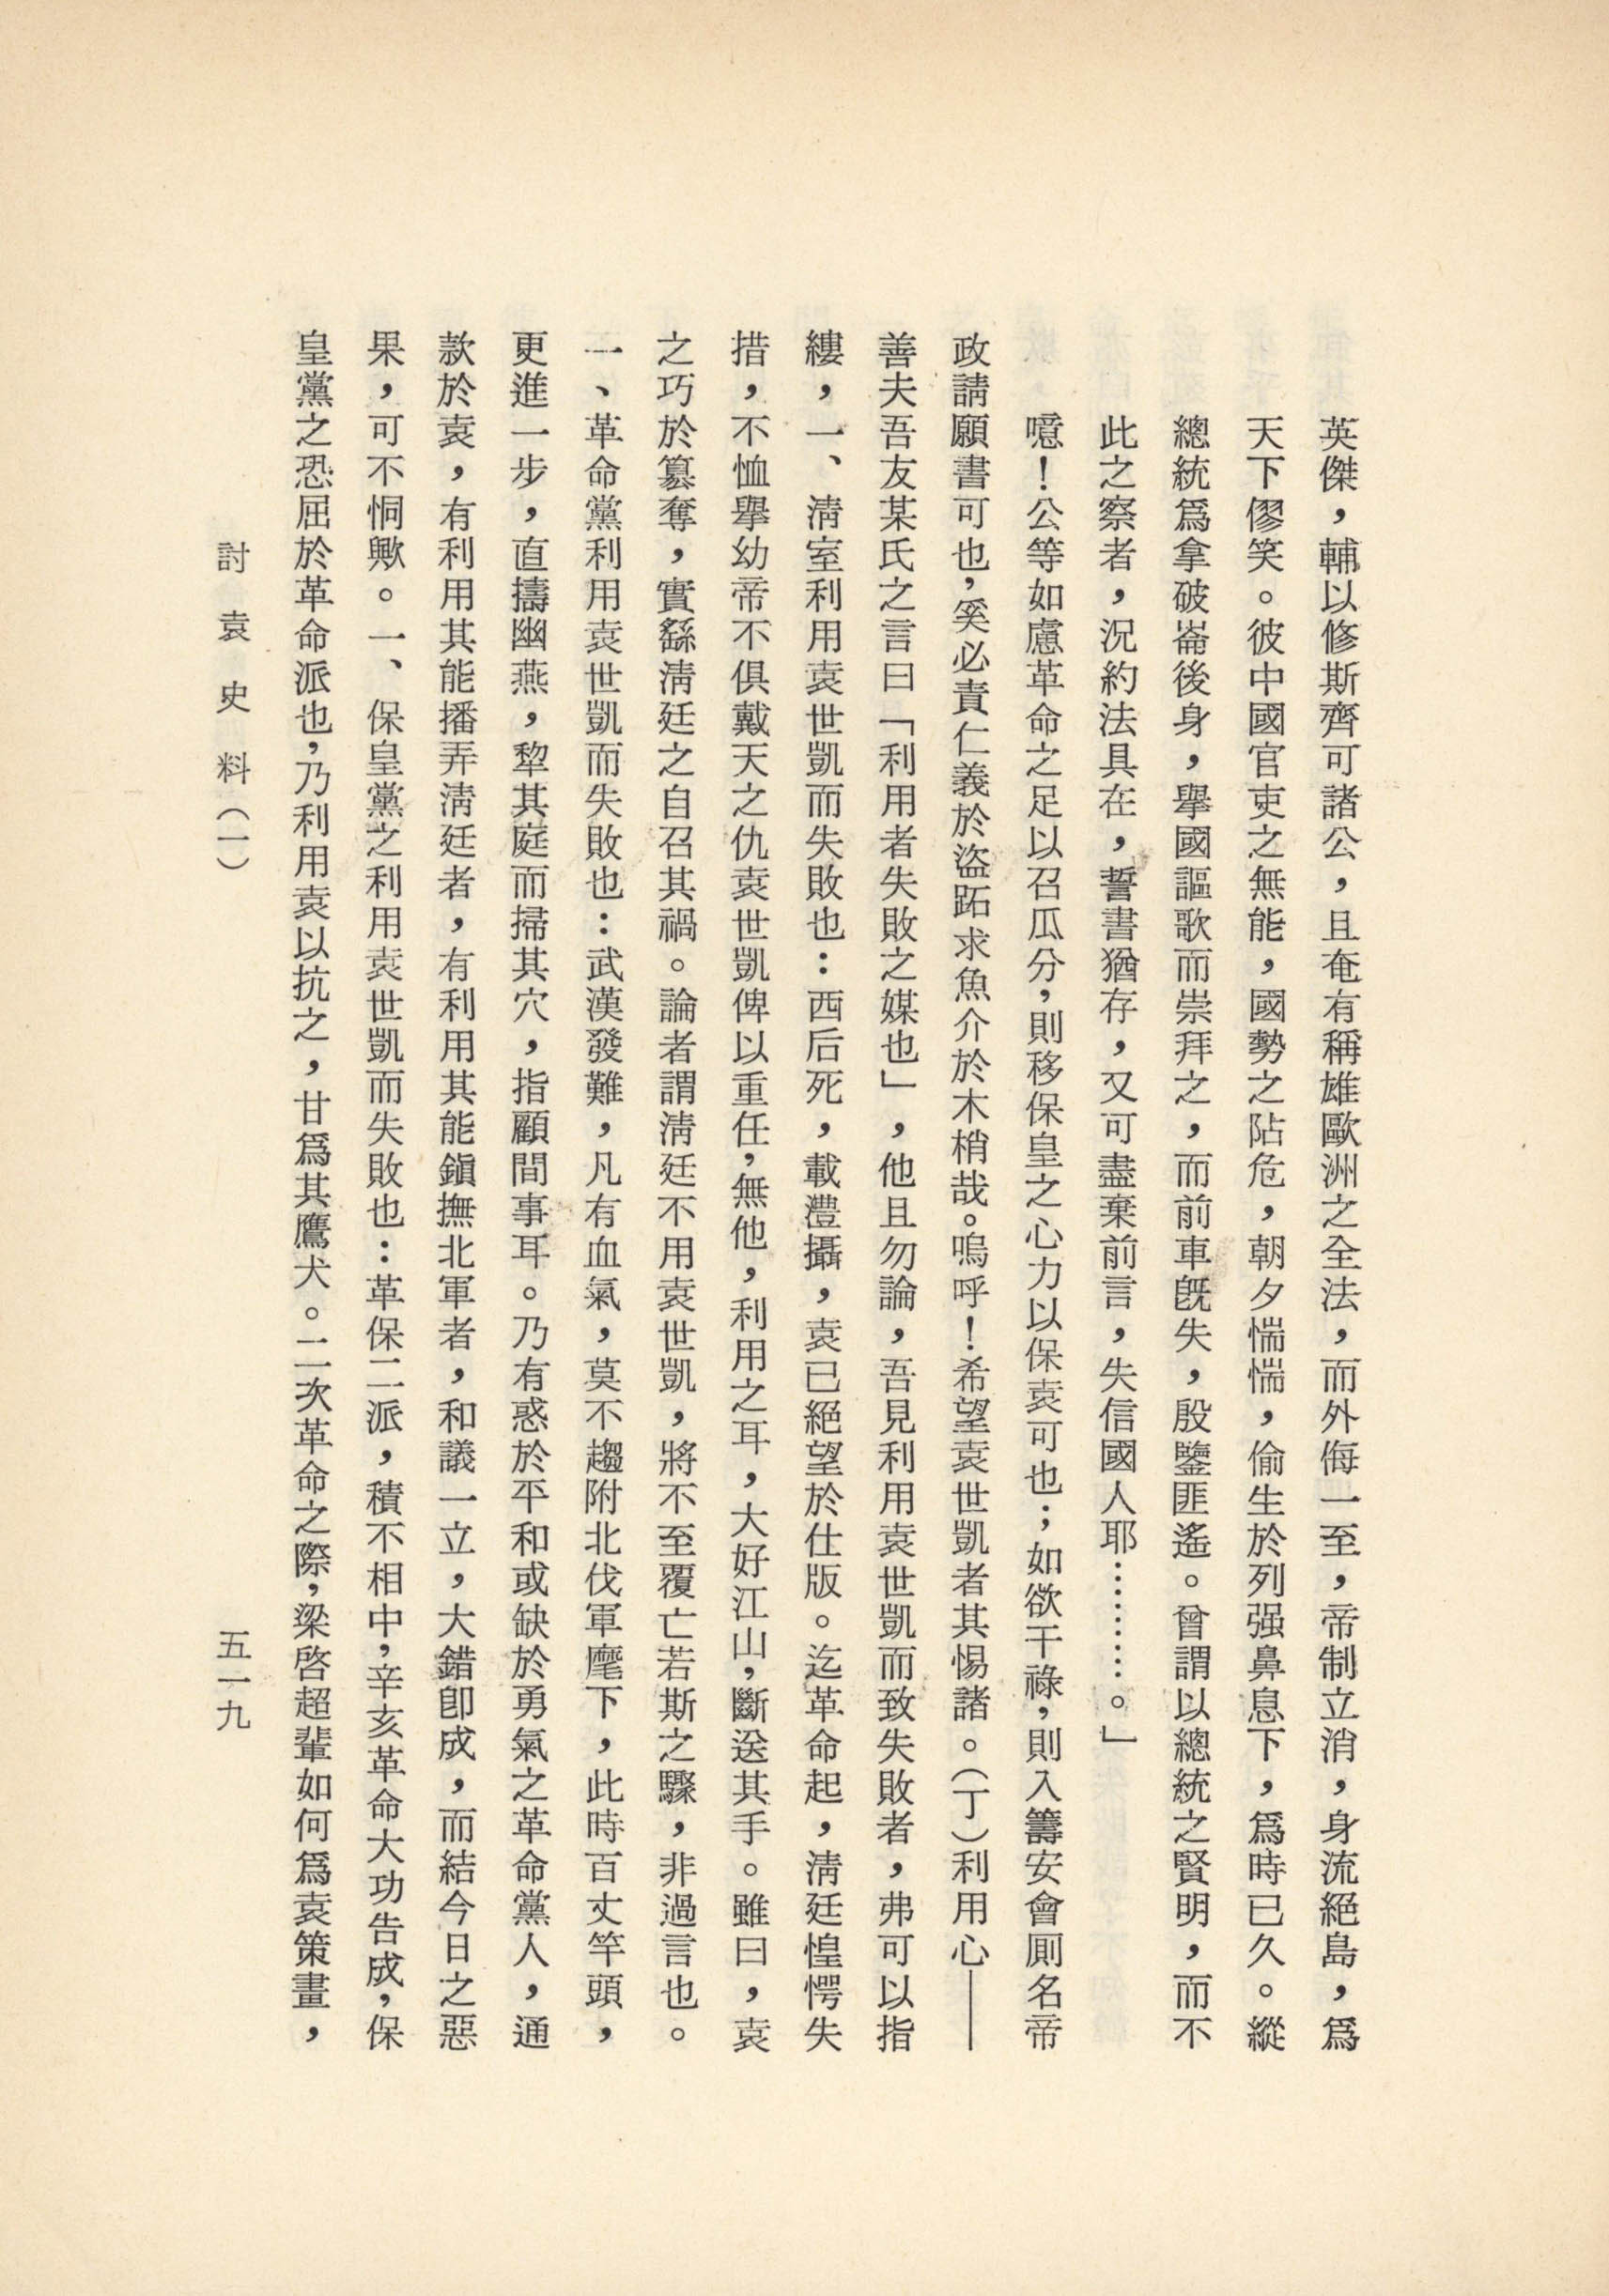 英傑，輔以修斯齊可諸公，且奄有稱雄歐洲之全法，而外侮一至，帝制立消，身流絕島，爲
天下僇笑。彼中國官吏之無能，國勢之阽危，朝夕惴惴，偷生於列强鼻息下，爲時已久。縱
總統爲拿破崙後身，舉國謳歌而崇拜之，而前車旣失，殷鑒匪遙。曾謂以總統之賢明，而不
此之察者，況約法具在，誓書猶存，又可盡棄前言，失信國人耶………。」
噫！公等如慮革命之足以召瓜分，則移保皇之心力以保袁可也；如欲干祿，則入籌安會厠名帝
政請願書可也，奚必責仁義於盜跖求魚介於木梢哉。嗚呼！希望袁世凱者其惕諸。（丁）利用心——
善夫吾友某氏之言曰「利用者失敗之媒也」，他且勿論，吾見利用袁世凱而致失敗者，弗可以指
縷，一、淸室利用袁世凱而失敗也：西后死，載灃攝，袁已絕望於仕版。迄革命起，淸廷惶愕失
措，不恤舉幼帝不俱戴天之仇袁世凱俾以重任，無他，利用之耳，大好江山，斷送其手。雖曰，袁
之巧於簒奪，實繇淸廷之自召其禍。論者謂淸廷不用袁世凱，將不至覆亡若斯之驟，非過言也。
一、革命黨利用袁世凱而失敗也：武漢發難，凡有血氣，莫不趨附北伐軍麾下，此時百丈竿頭，
更進一步，直擣幽燕，犂其庭而掃其穴，指顧間事耳。乃有惑於平和或缺於勇氣之革命黨人，通
款於袁，有利用其能播弄淸廷者，有利用其能鎭撫北軍者，和議一立，大錯卽成，而結今日之惡
果，可不恫歟。一、保皇黨之利用袁世凱而失敗也：革保二派，積不相中，辛亥革命大功告成，保
皇黨之恐屈於革命派也，乃利用袁以抗之，甘爲其鷹犬。二次革命之際，梁啓超輩如何爲袁策畫，
討袁史料（一）
五一九